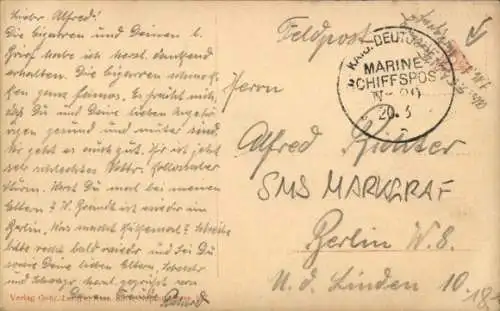 Lieber Alfred!
Die Zigarren und Deinen l.
Brief habe ich herzl. dankend
erhalten. Die Zigarren schmek-
ken ganz famos. Es freut mich,
daß Du und Deine lieben Angehö-
rigen gesund und munter sind.
Mir geht es auch gut. Hier ist jetzt
sehr schlechtes Wetter. Kolossaler
Sturm. Warst Du mal bei meinen
Eltern? W. Brandt ist wieder in
Berlin. Was macht Schreibe
bitte recht bald wieder und sei Du
sowie Deine lieben Eltern, Schwester
und Schwager herzl. gegrüßt von
Verlag Gebr.
Feldpost
KAIS. DEUTSCHE
MARINE
SCHIFFSPOST
No 20
20. 3
Herrn
Alfred Richter
SMS MARKGRAF
Berlin W. 8.
U. d. Linden 10.